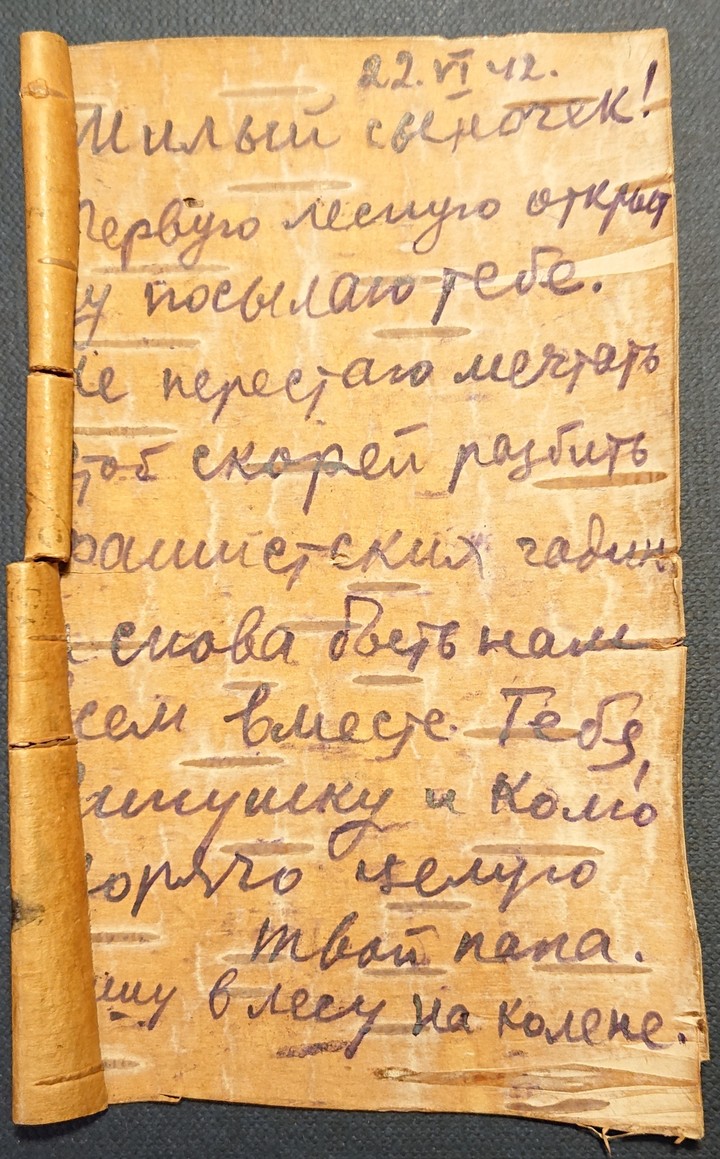 22.VI 42.
Милый сыночек!
Первую лесную открыт
ку посылаю тебе.
Не перестаю мечтать
чтоб скорей разбить
фашистских гадин
и снова быть нам
всем вместе. Тебя,
и Колю
горячо целую
твой папа.
пишу в лесу на колене.